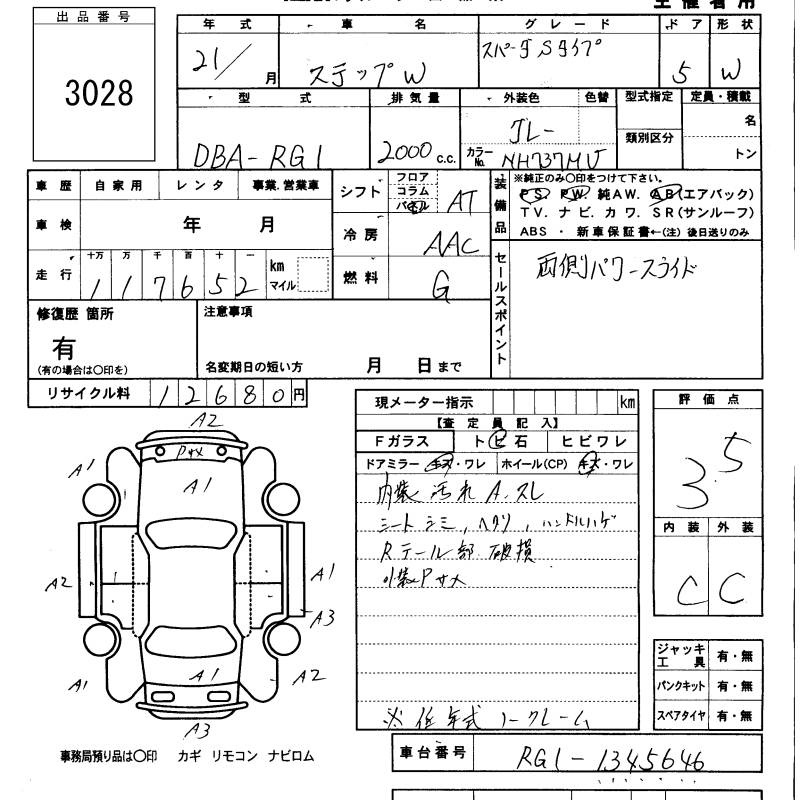 主催者用
出品番号
3028
年式 車名 グレード ドア 形状
21/ 月 ステップW スパーダSタイプ 5 W
型式 排気量 外装色 色替 型式指定 定員・積載
DBA-RG1 2000 c.c. グレー 類別区分 名
カラーNo. NH737MU トン
車歴 自家用 レンタ 事業.営業車 シフト フロア コラム パネル AT
装備品 ※純正のみ〇印をつけて下さい。
PS. PW. 純AW. AB(エアバック)
TV. ナビ. カワ. SR(サンルーフ)
ABS ・ 新車保証書←(注) 後日送りのみ
車検 年 月 冷房 AAC
走行 十万 万 千 百 十 一 km マイル 燃料 G
117652
セールスポイント 両側パワースライド
修復歴 箇所 注意事項
有
(有の場合は〇印を) 名変期日の短い方 月 日まで
リサイクル料 12680円
現メーター指示 km 評価点
【査定員記入】 3.5
Fガラス トビ石 ヒビワレ
ドアミラー キズ・ワレ ホイール(CP) キズ・ワレ
内装 汚れ A.スレ
シート シミ, ヘタリ, ハンドルハゲ
Rテール部 破損
外装Pサメ
※ 低年式 ノークレーム
内装 外装
C C
ジャッキ工具 有・無
パンクキット 有・無
スペアタイヤ 有・無
A2
Pサメ
A1
A1
A2
A1
A3
A1
A1
A2
A3
事務局預り品は〇印 カギ リモコン ナビロム
車台番号 RG1-1345646